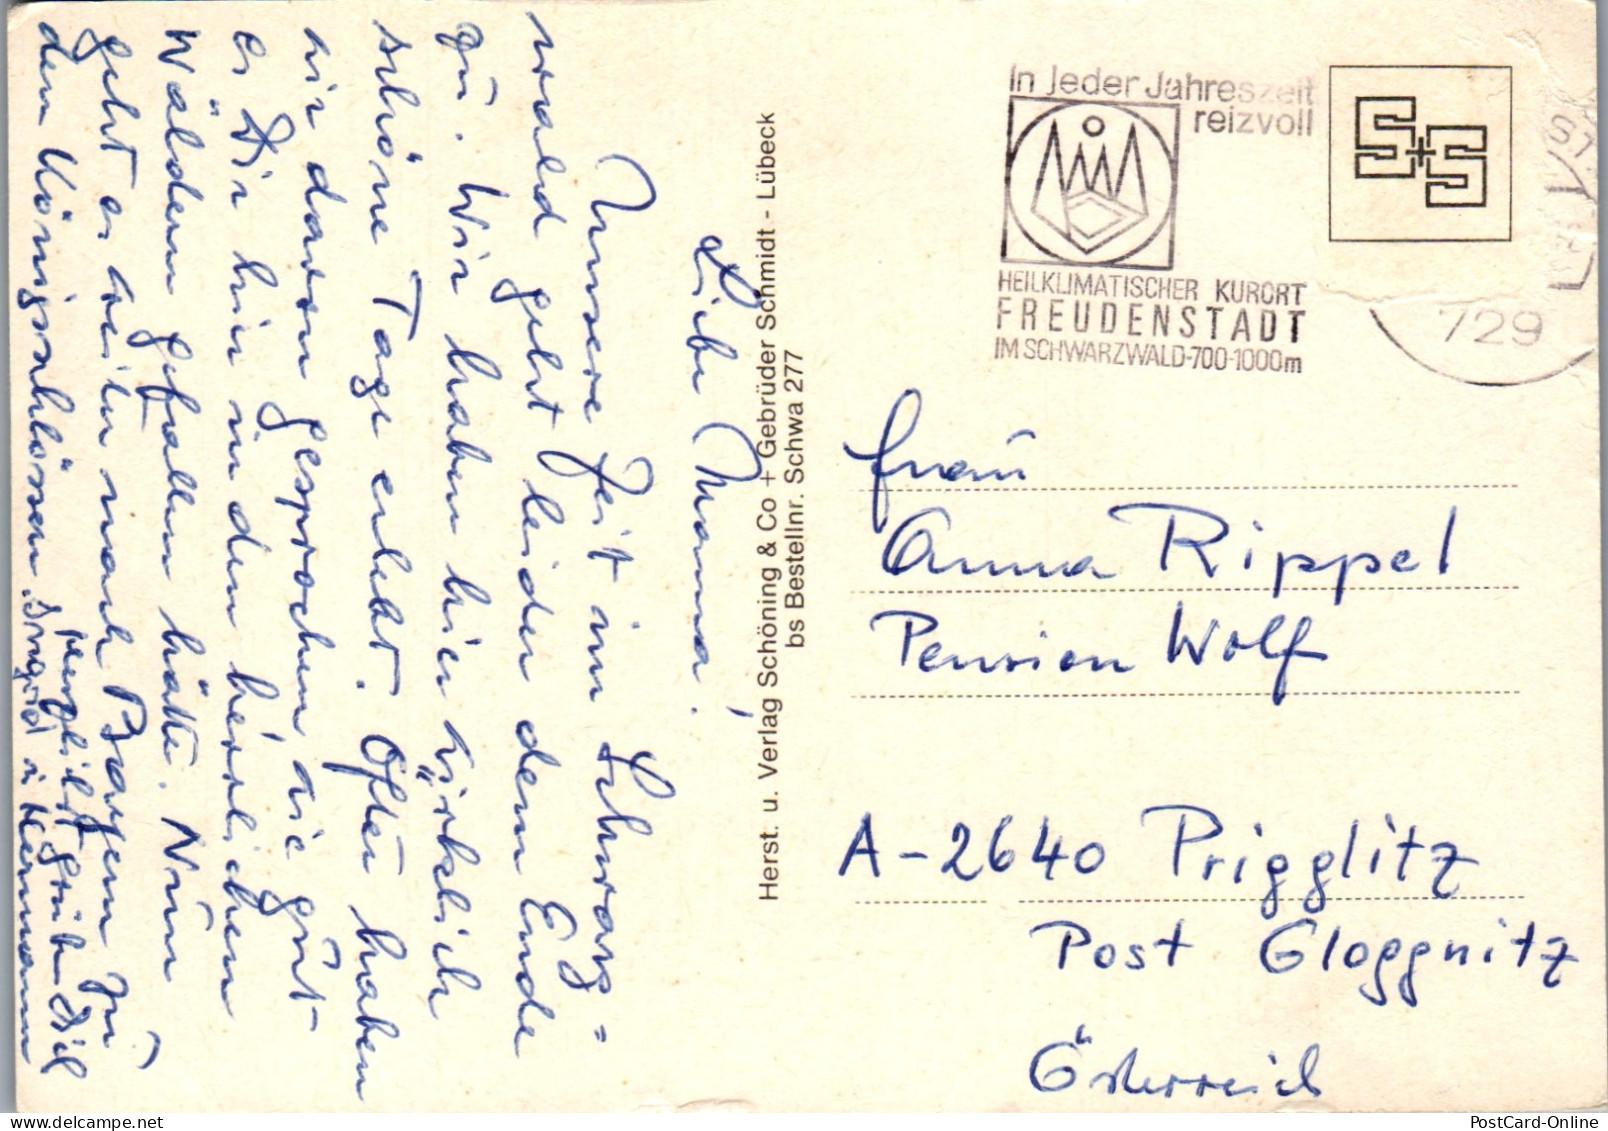 Liebe Mama!
Unsere Zeit im Schwarz=
wald geht leider dem Ende
zu. Wir haben hier wirklich
schöne Tage erlebt. Öfter haben
wir davon gesprochen, wie gut
es Dir hier in den herrlichen
Wäldern gefallen hätte. Nun
geht es weiter nach Bayern zu
den Königsschlössern.
Herzlichst grüßen Dich
Ingrid u. Hermann
Herst. u. Verlag Schöning & Co + Gebrüder Schmidt - Lübeck
bs Bestellnr. Schwa 277
In jeder Jahreszeit
reizvoll
HEILKLIMATISCHER KURORT
FREUDENSTADT
IM SCHWARZWALD-700-1000m
S+S
729
Frau
Anna Rippel
Pension Wolf
A-2640 Prigglitz
Post Gloggnitz
Österreich
PostCard-Online